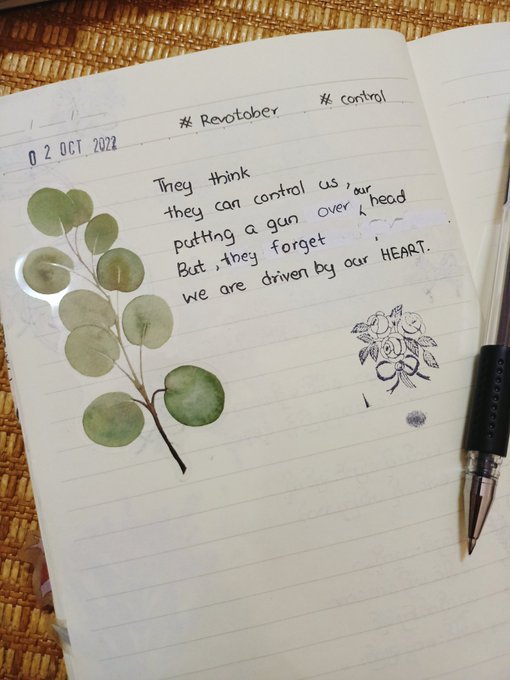 02 OCT 2022
# Revotober # control
They think
they can control us,
putting a gun over our head
But, they forget
we are driven by our HEART.